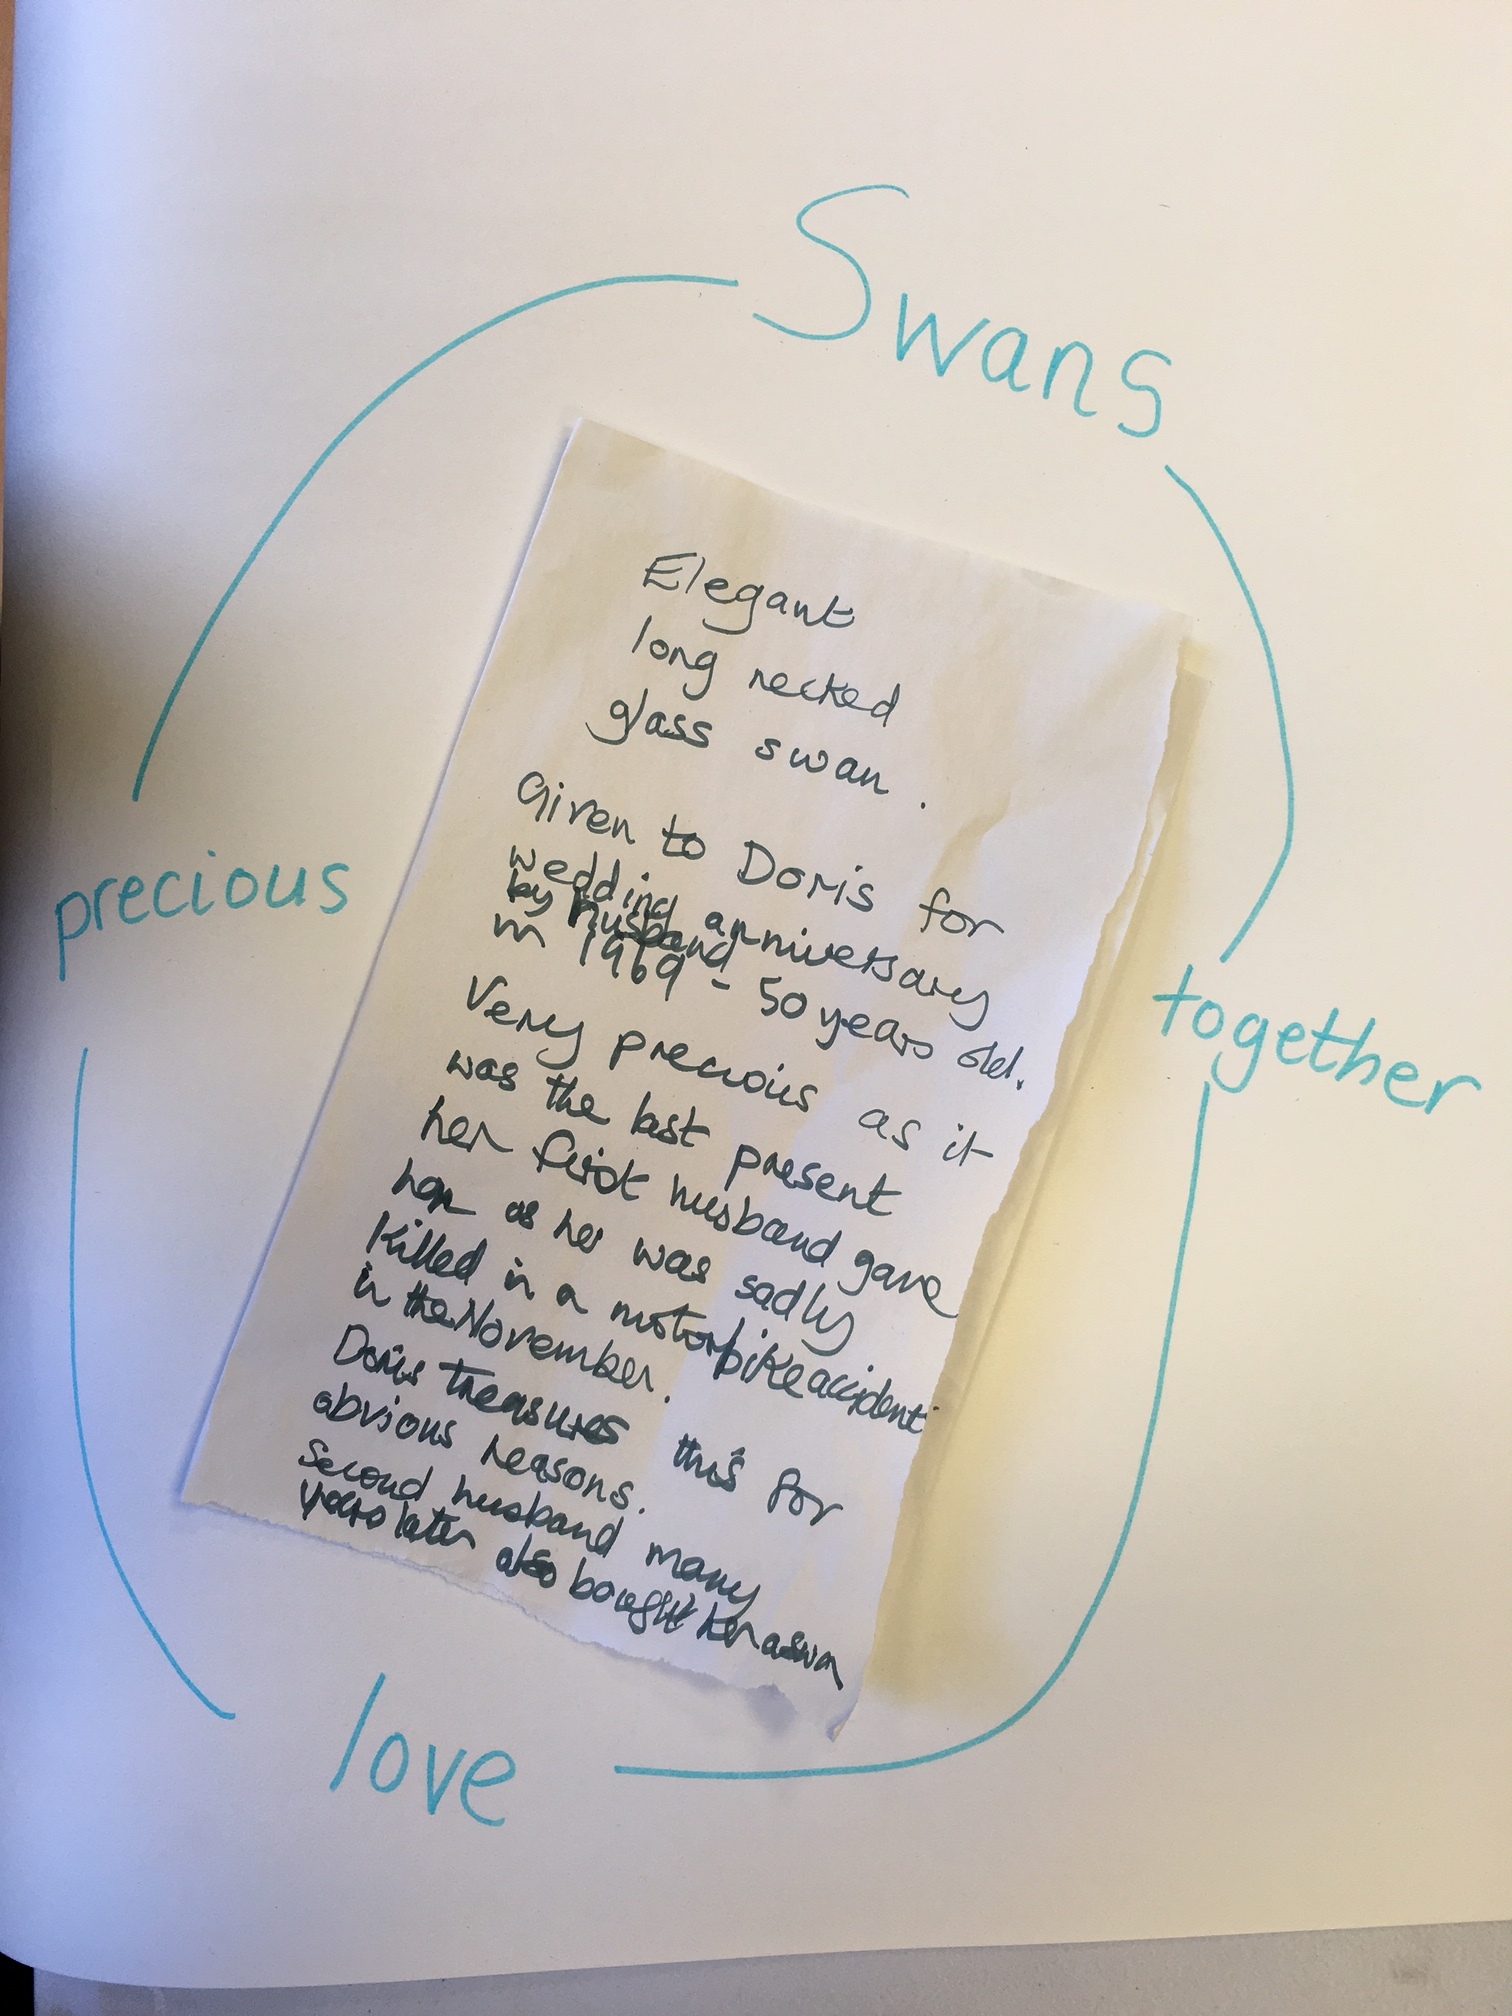 Swans
Elegant
long necked
glass swan.
Given to Doris for
wedding anniversary
by husband
in 1969 - 50 years old.
Very precious as it
was the last present
her first husband gave
her as he was sadly
Killed in a motorbike accident
in the November.
Doris treasures this for
obvious reasons.
Second husband many
years later also bought her a swan
precious
together
love